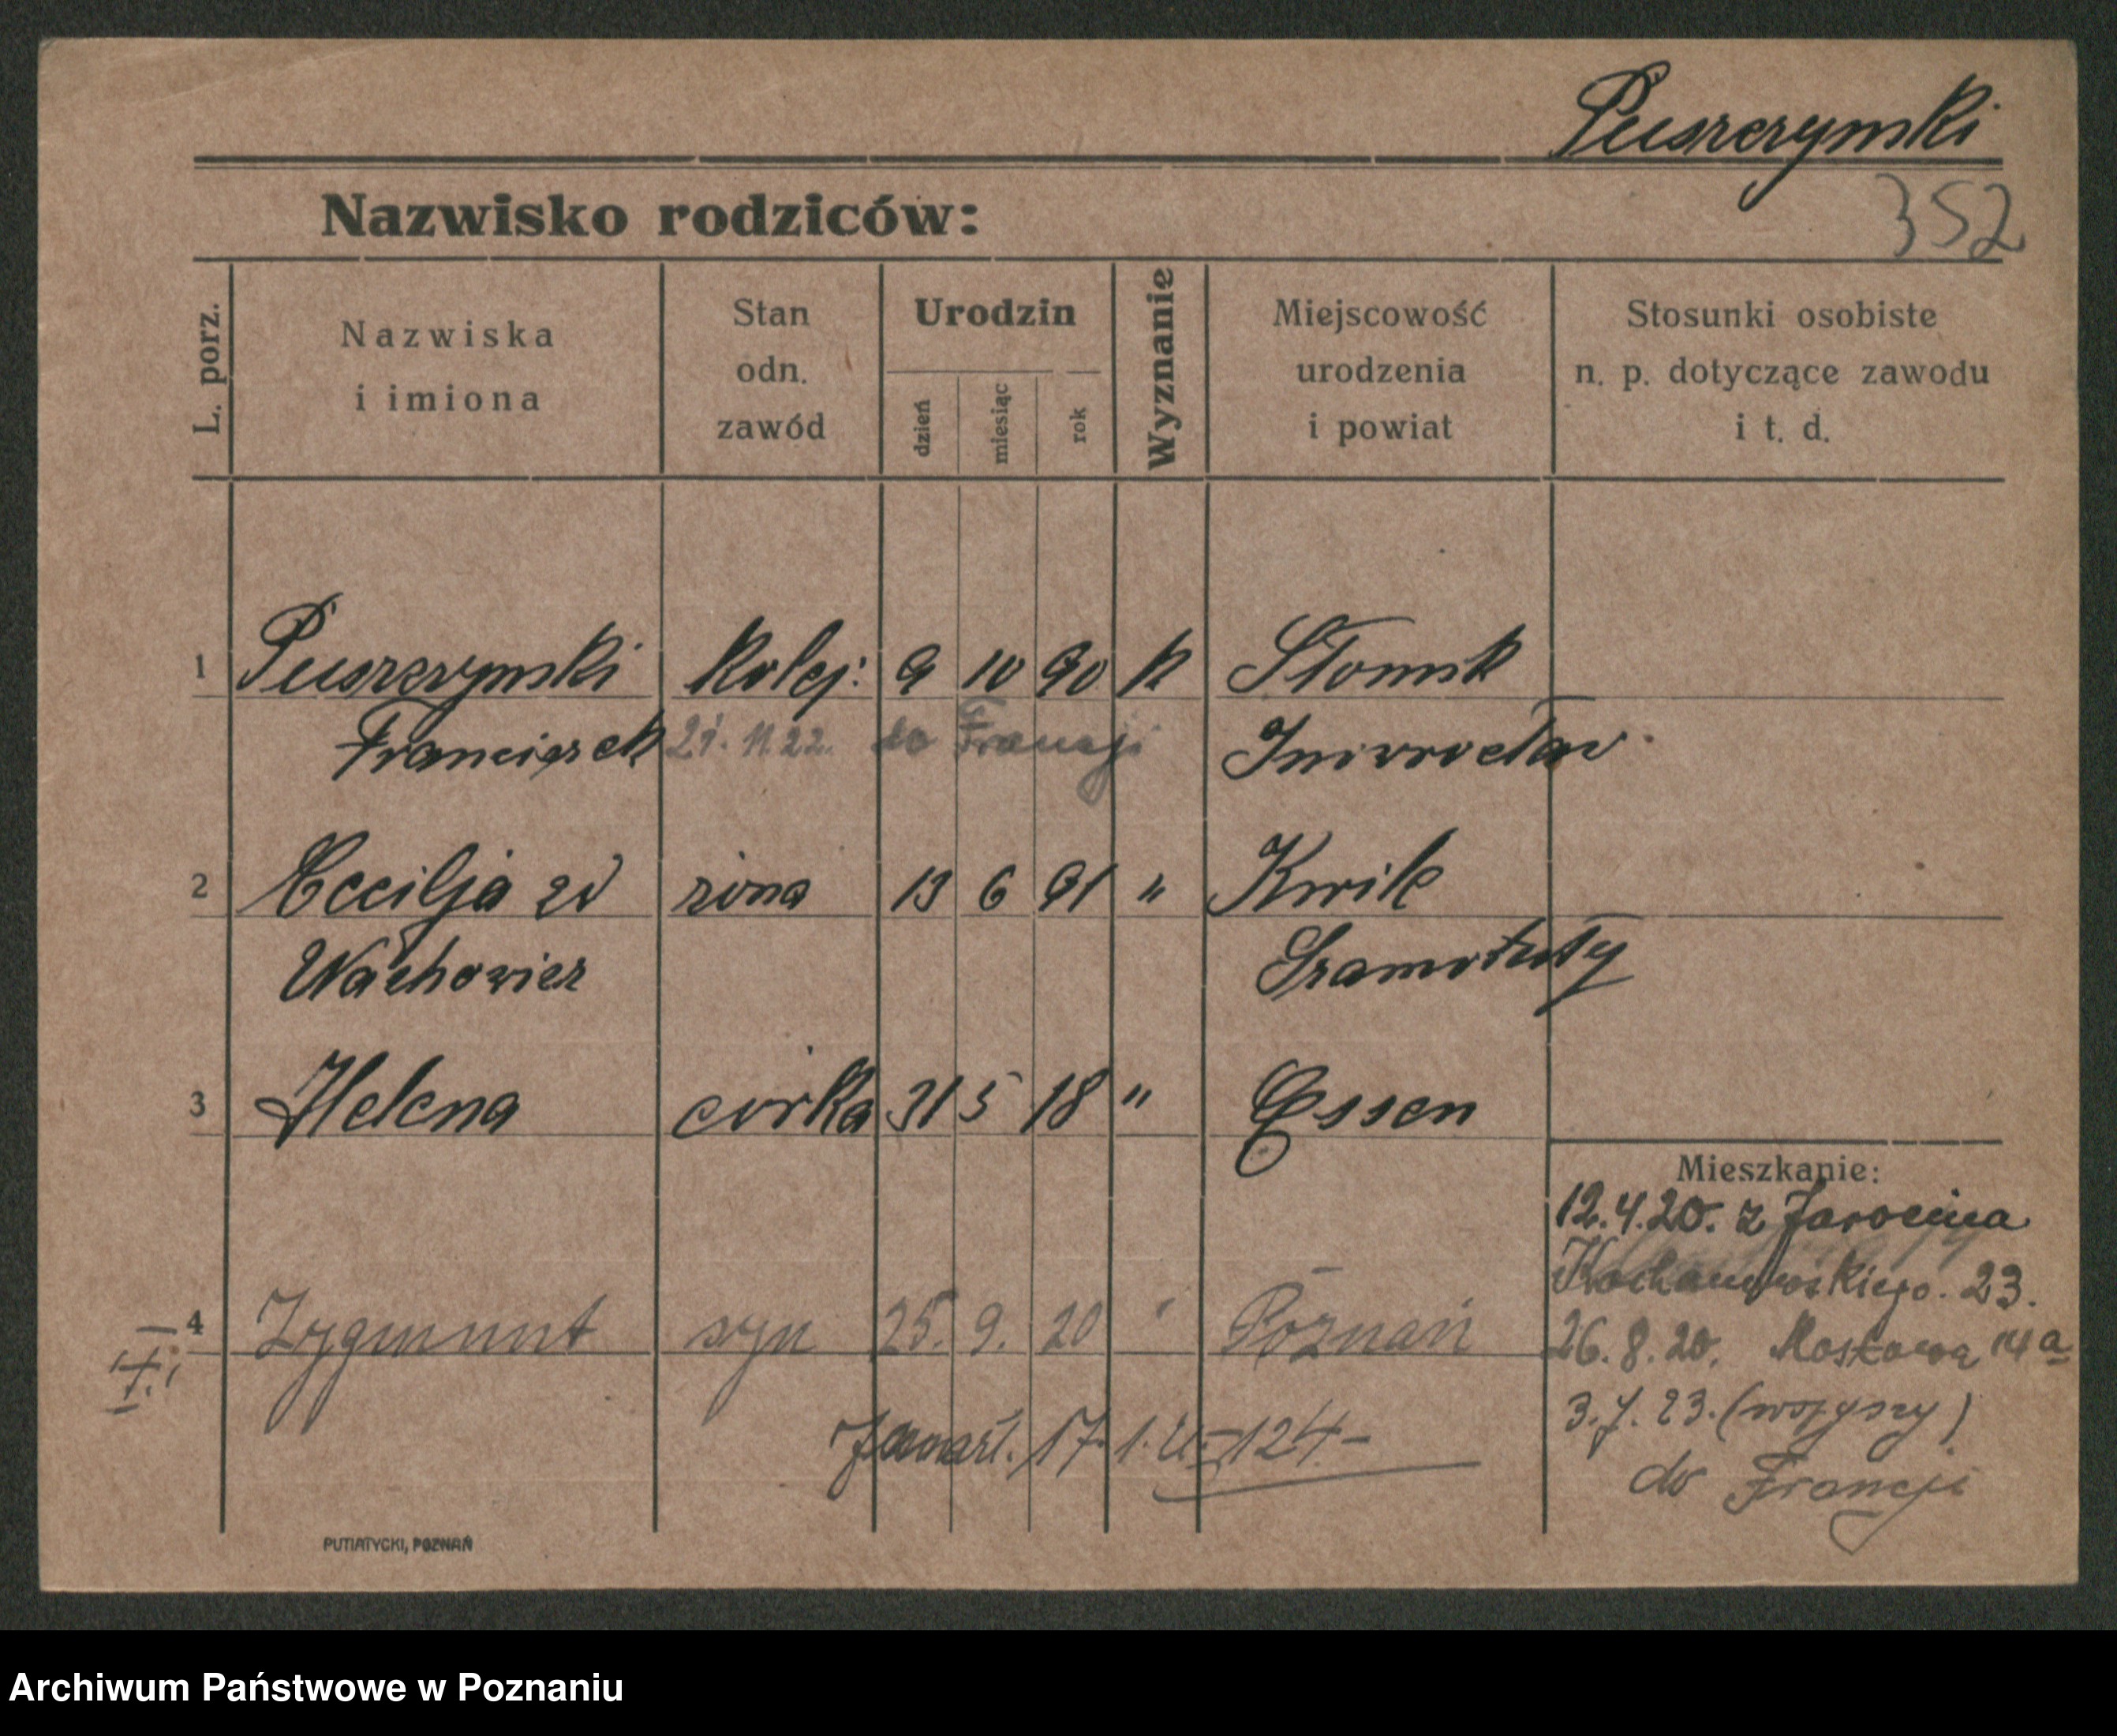 Puszczymski
352
Nazwisko rodziców:
L. porz.
Nazwiska
i imiona
Stan
odn.
zawód
Urodzin
dzień
miesiąc
rok
Wyznanie
Miejscowość
urodzenia
i powiat
Stosunki osobiste
n. p. dotyczące zawodu
i t. d.
1 Puszczymski kolej. 9 10 90 k Słomsk
Franciszek 21. 11. 22. do Francji Inowrocław
2 Cecilja zd żona 13 6 91 " Kwilc
Wachowicz Szamotuły
3 Helena córka 31 5 18 " Essen
Mieszkanie:
12.4.20. z Jarocina
Kochanowskiego. 23.
4 Zygmunt syn 25. 9. 20 " Poznań
26. 8. 20. Mostowa 14a
3. 7. 23. (wszyscy)
zmarł. 17. 1. 124
do Francji
PUTIATYCKI, POZNAŃ
Archiwum Państwowe w Poznaniu